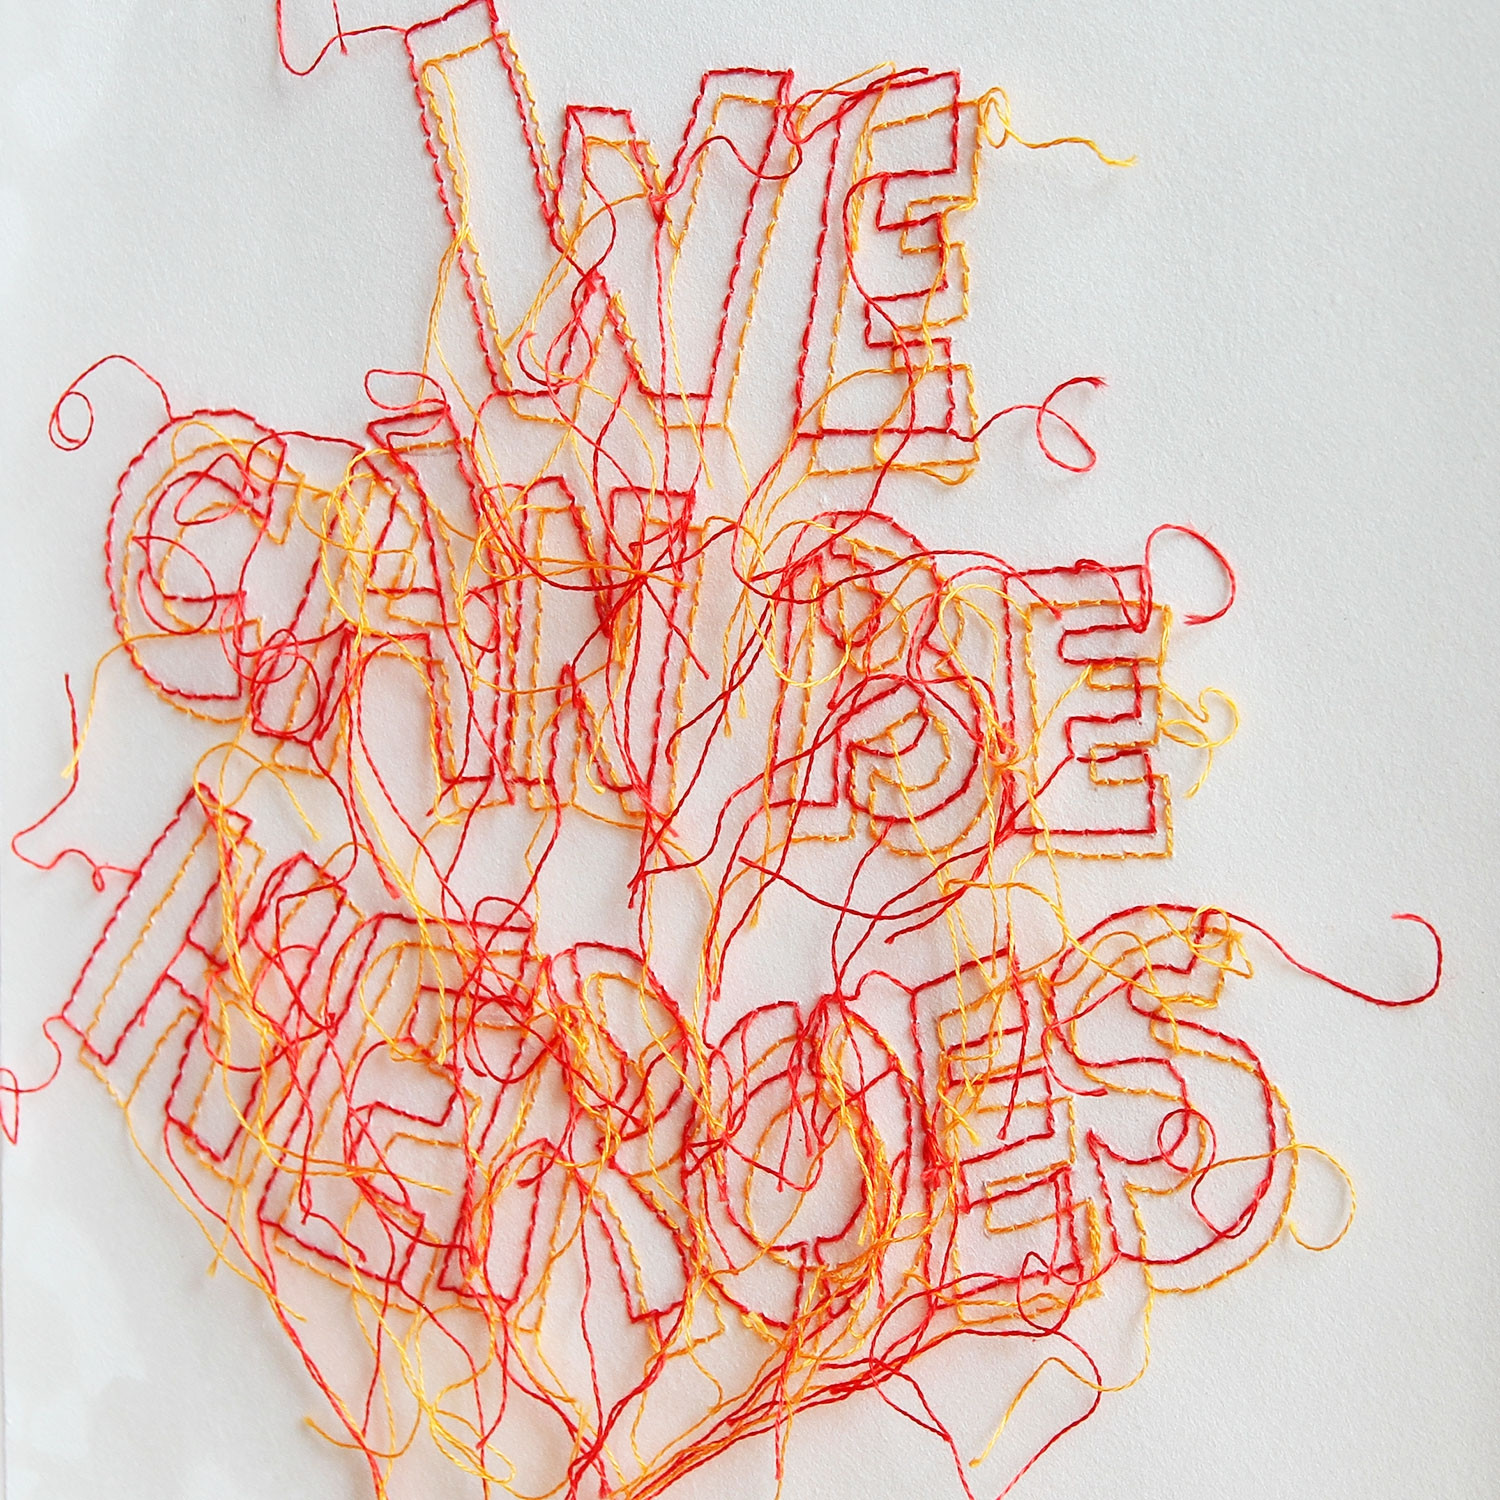 WE
CAN BE
HEROES